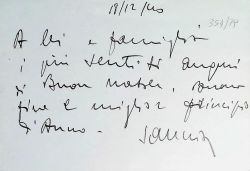 18/12/40
354/19
A lei e famiglia
i più sentiti auguri
di Buon natale, buona
fine e miglior principio
d'Anno.